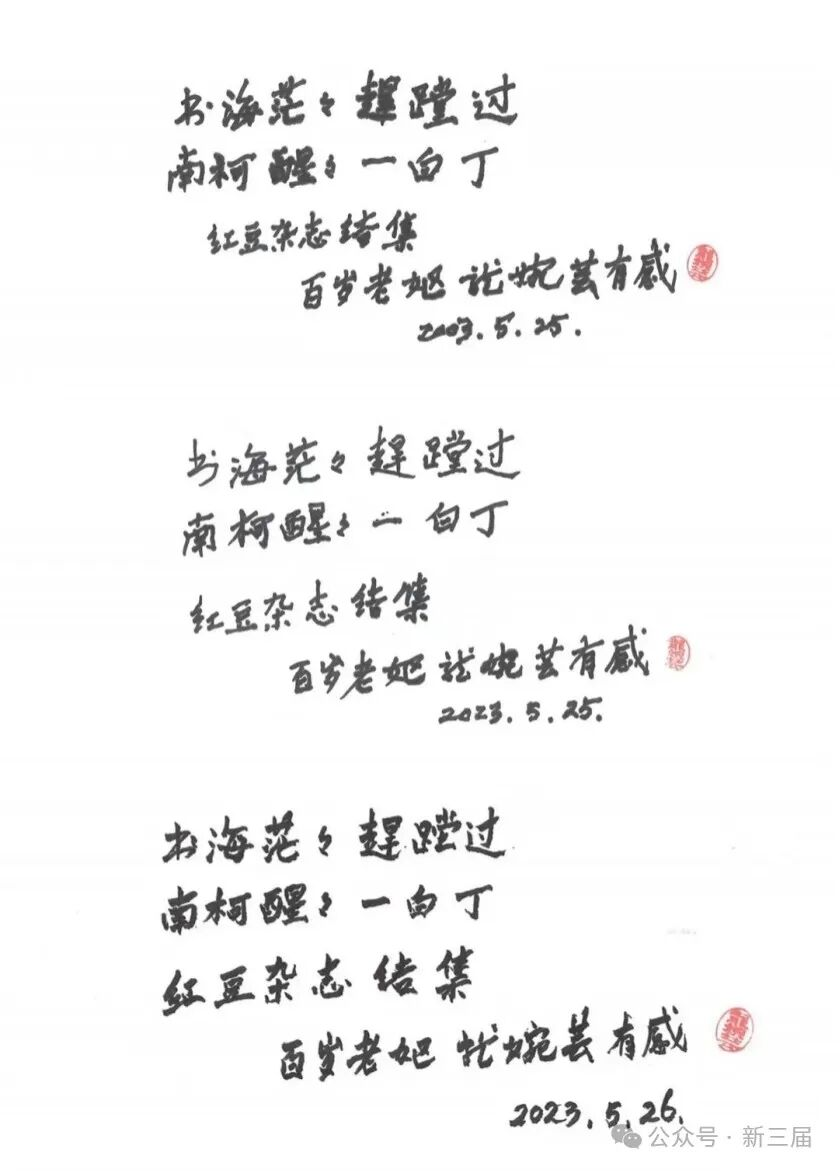 书海茫々趕蹚过
南柯醒々一白丁
红豆杂志结集
百岁老妪 龙婉芸有感
2003.5.25.
书海茫々趕蹚过
南柯醒々一白丁
红豆杂志结集
百岁老妪 龙婉芸有感
2023.5.25.
书海茫々趕蹚过
南柯醒々一白丁
红豆杂志结集
百岁老妪 龙婉芸有感
2023.5.26.
公众号·新三届